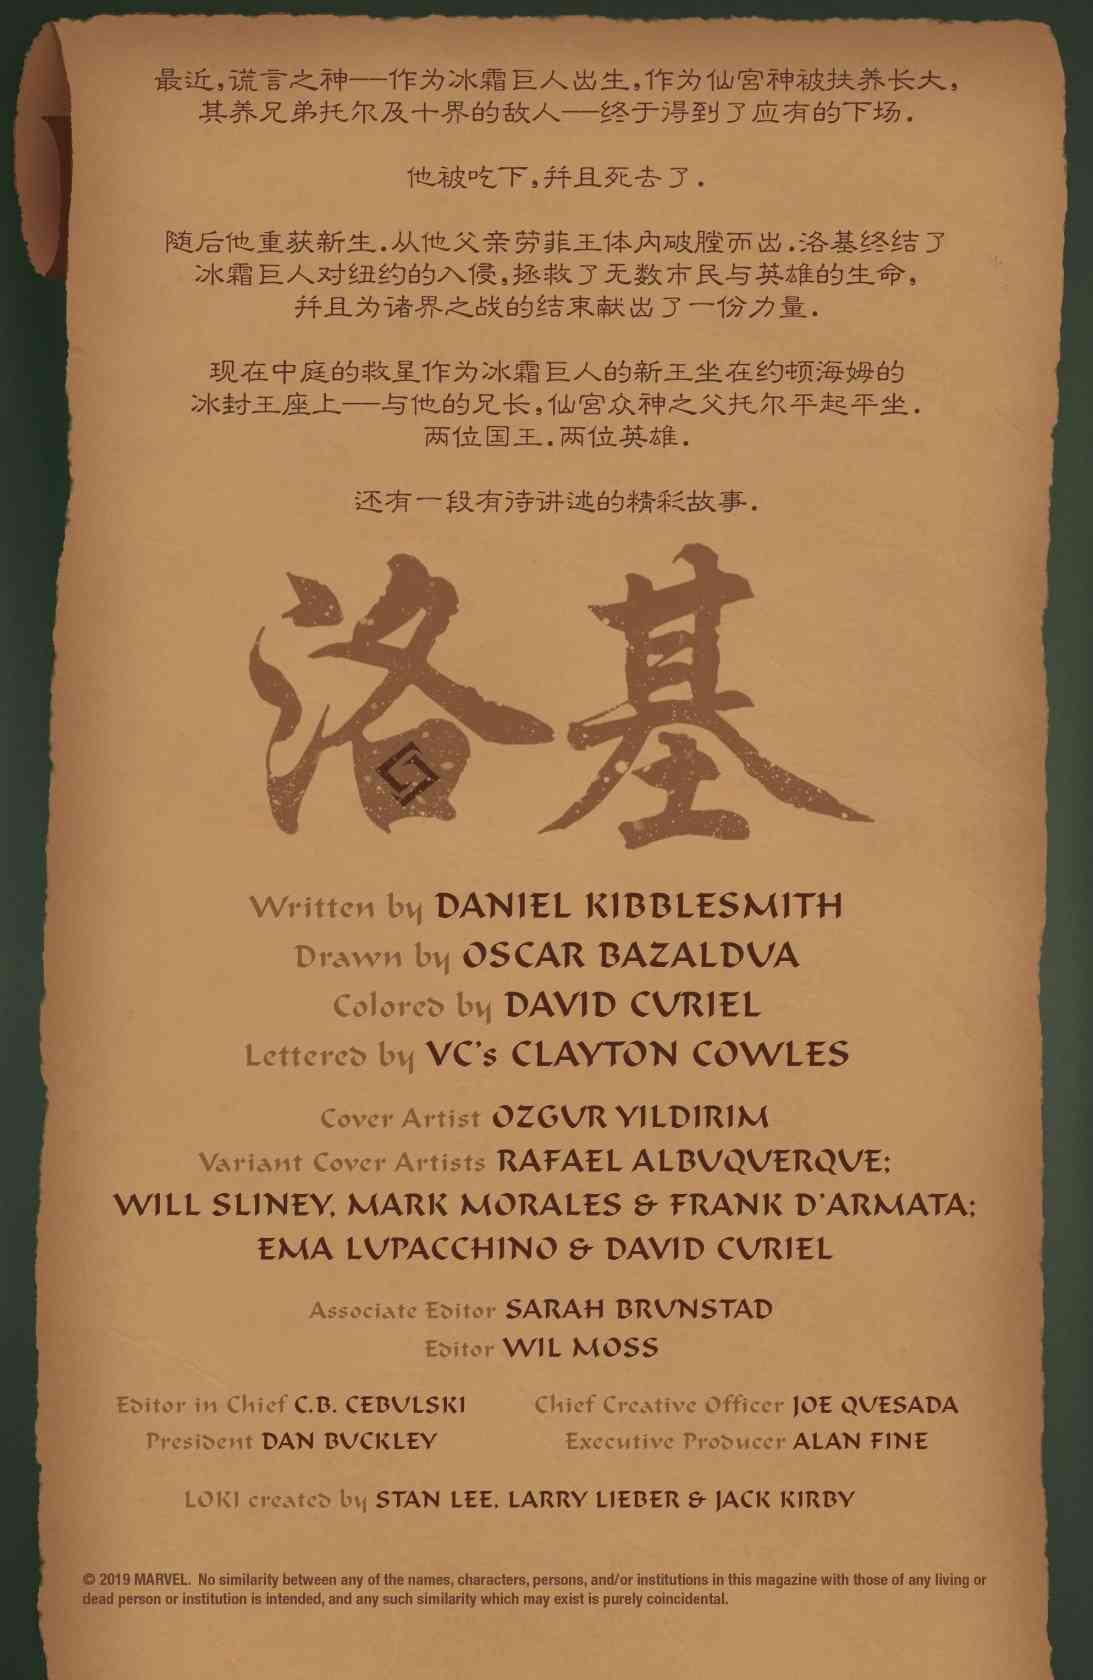 最近,谎言之神——作为冰霜巨人出生,作为仙宫神被扶养长大,
其养兄弟托尔及十界的敌人——终于得到了应有的下场.
他被吃下,并且死去了.
随后他重获新生.从他父亲劳菲王体内破膛而出.洛基终结了
冰霜巨人对纽约的入侵,拯救了无数市民与英雄的生命,
并且为诸界之战的结束献出了一份力量.
现在中庭的救星作为冰霜巨人的新王坐在约顿海姆的
冰封王座上——与他的兄长,仙宫众神之父托尔平起平坐.
两位国王.两位英雄.
还有一段有待讲述的精彩故事.
洛基
Written by DANIEL KIBBLESMITH
Drawn by OSCAR BAZALDUA
Colored by DAVID CURIEL
Lettered by VC's CLAYTON COWLES
Cover Artist OZGUR YILDIRIM
Variant Cover Artists RAFAEL ALBUQUERQUE;
WILL SLINEY, MARK MORALES & FRANK D'ARMATA;
EMA LUPACCHINO & DAVID CURIEL
Associate Editor SARAH BRUNSTAD
Editor WIL MOSS
Editor in Chief C.B. CEBULSKI
Chief Creative Officer JOE QUESADA
President DAN BUCKLEY
Executive Producer ALAN FINE
LOKI created by STAN LEE, LARRY LIEBER & JACK KIRBY
© 2019 MARVEL. No similarity between any of the names, characters, persons, and/or institutions in this magazine with those of any living or
dead person or institution is intended, and any such similarity which may exist is purely coincidental.